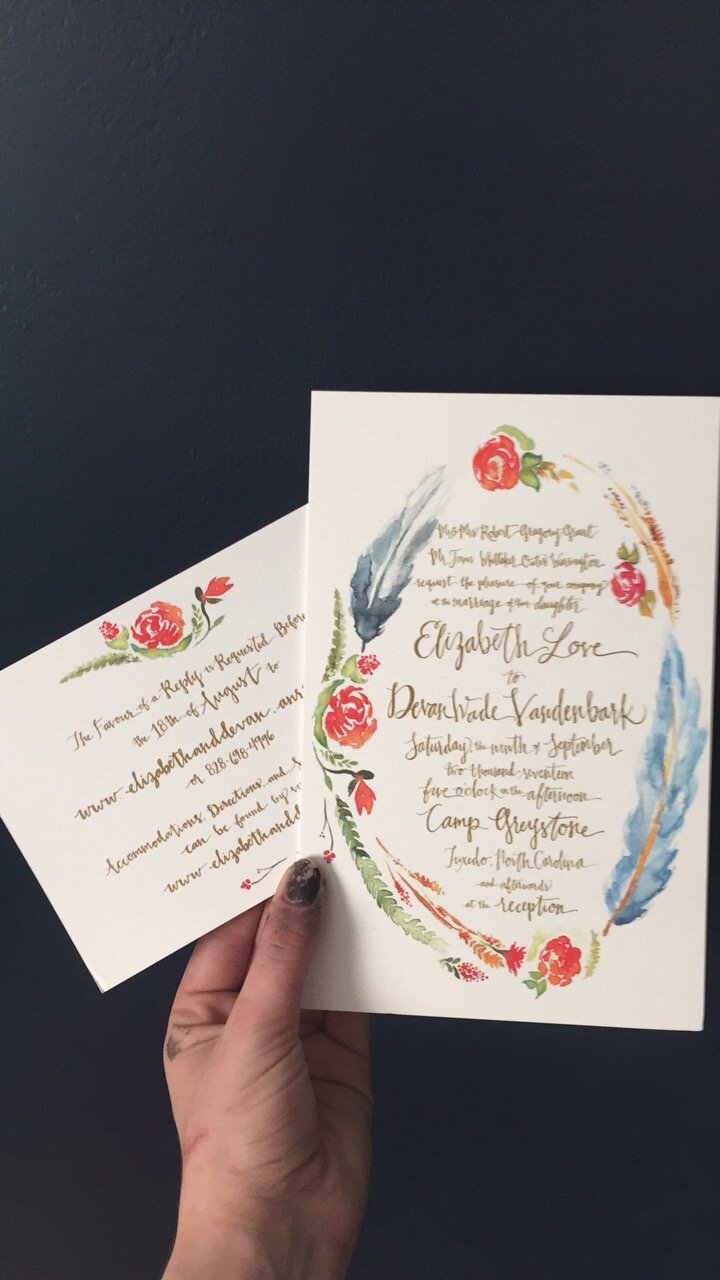 The Favour of a Reply is Requested Before
the 18th of August to
www.elizabethanddevan.
or 828-698-4996
Accommodations, Directions and
can be found by
www.elizabethandd
Mr & Mrs Robert Gregory Grant
Mr. James Whittaker Oates Warrington
request the pleasure of your company
at the marriage of their daughter
Elizabeth Love
to
Devan Wade Vandenbark
Saturday the ninth of September
two thousand seventeen
five o'clock in the afternoon
Camp Greystone
Tuxedo, North Carolina
and afterwards
at the reception